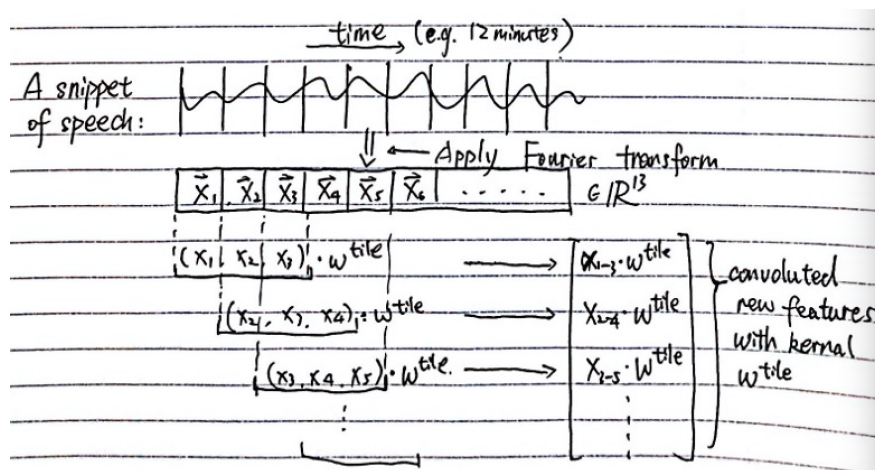 time (e.g. 12 minutes)
A snippet
of speech:
Apply Fourier transform
X₁ X₂ X₃ X₄ X₅ X₆ ..... ∈ ℝ¹³
(x₁ x₂ x₃) · w^tile → X₁₋₃ · w^tile
(x₂, x₃, x₄) · w^tile → X₂₋₄ · w^tile
(x₃, x₄, x₅) · w^tile. → X₃₋₅ · w^tile
convoluted
new features
with kernal
w^tile